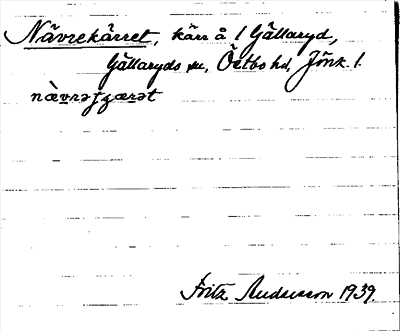 Nävrekärret, kärr å 1 Gällaryd,
Gällaryds sn, Östbo hd, Jönk. l.
nàvrəʃærət
Fritz Andersson 1939.